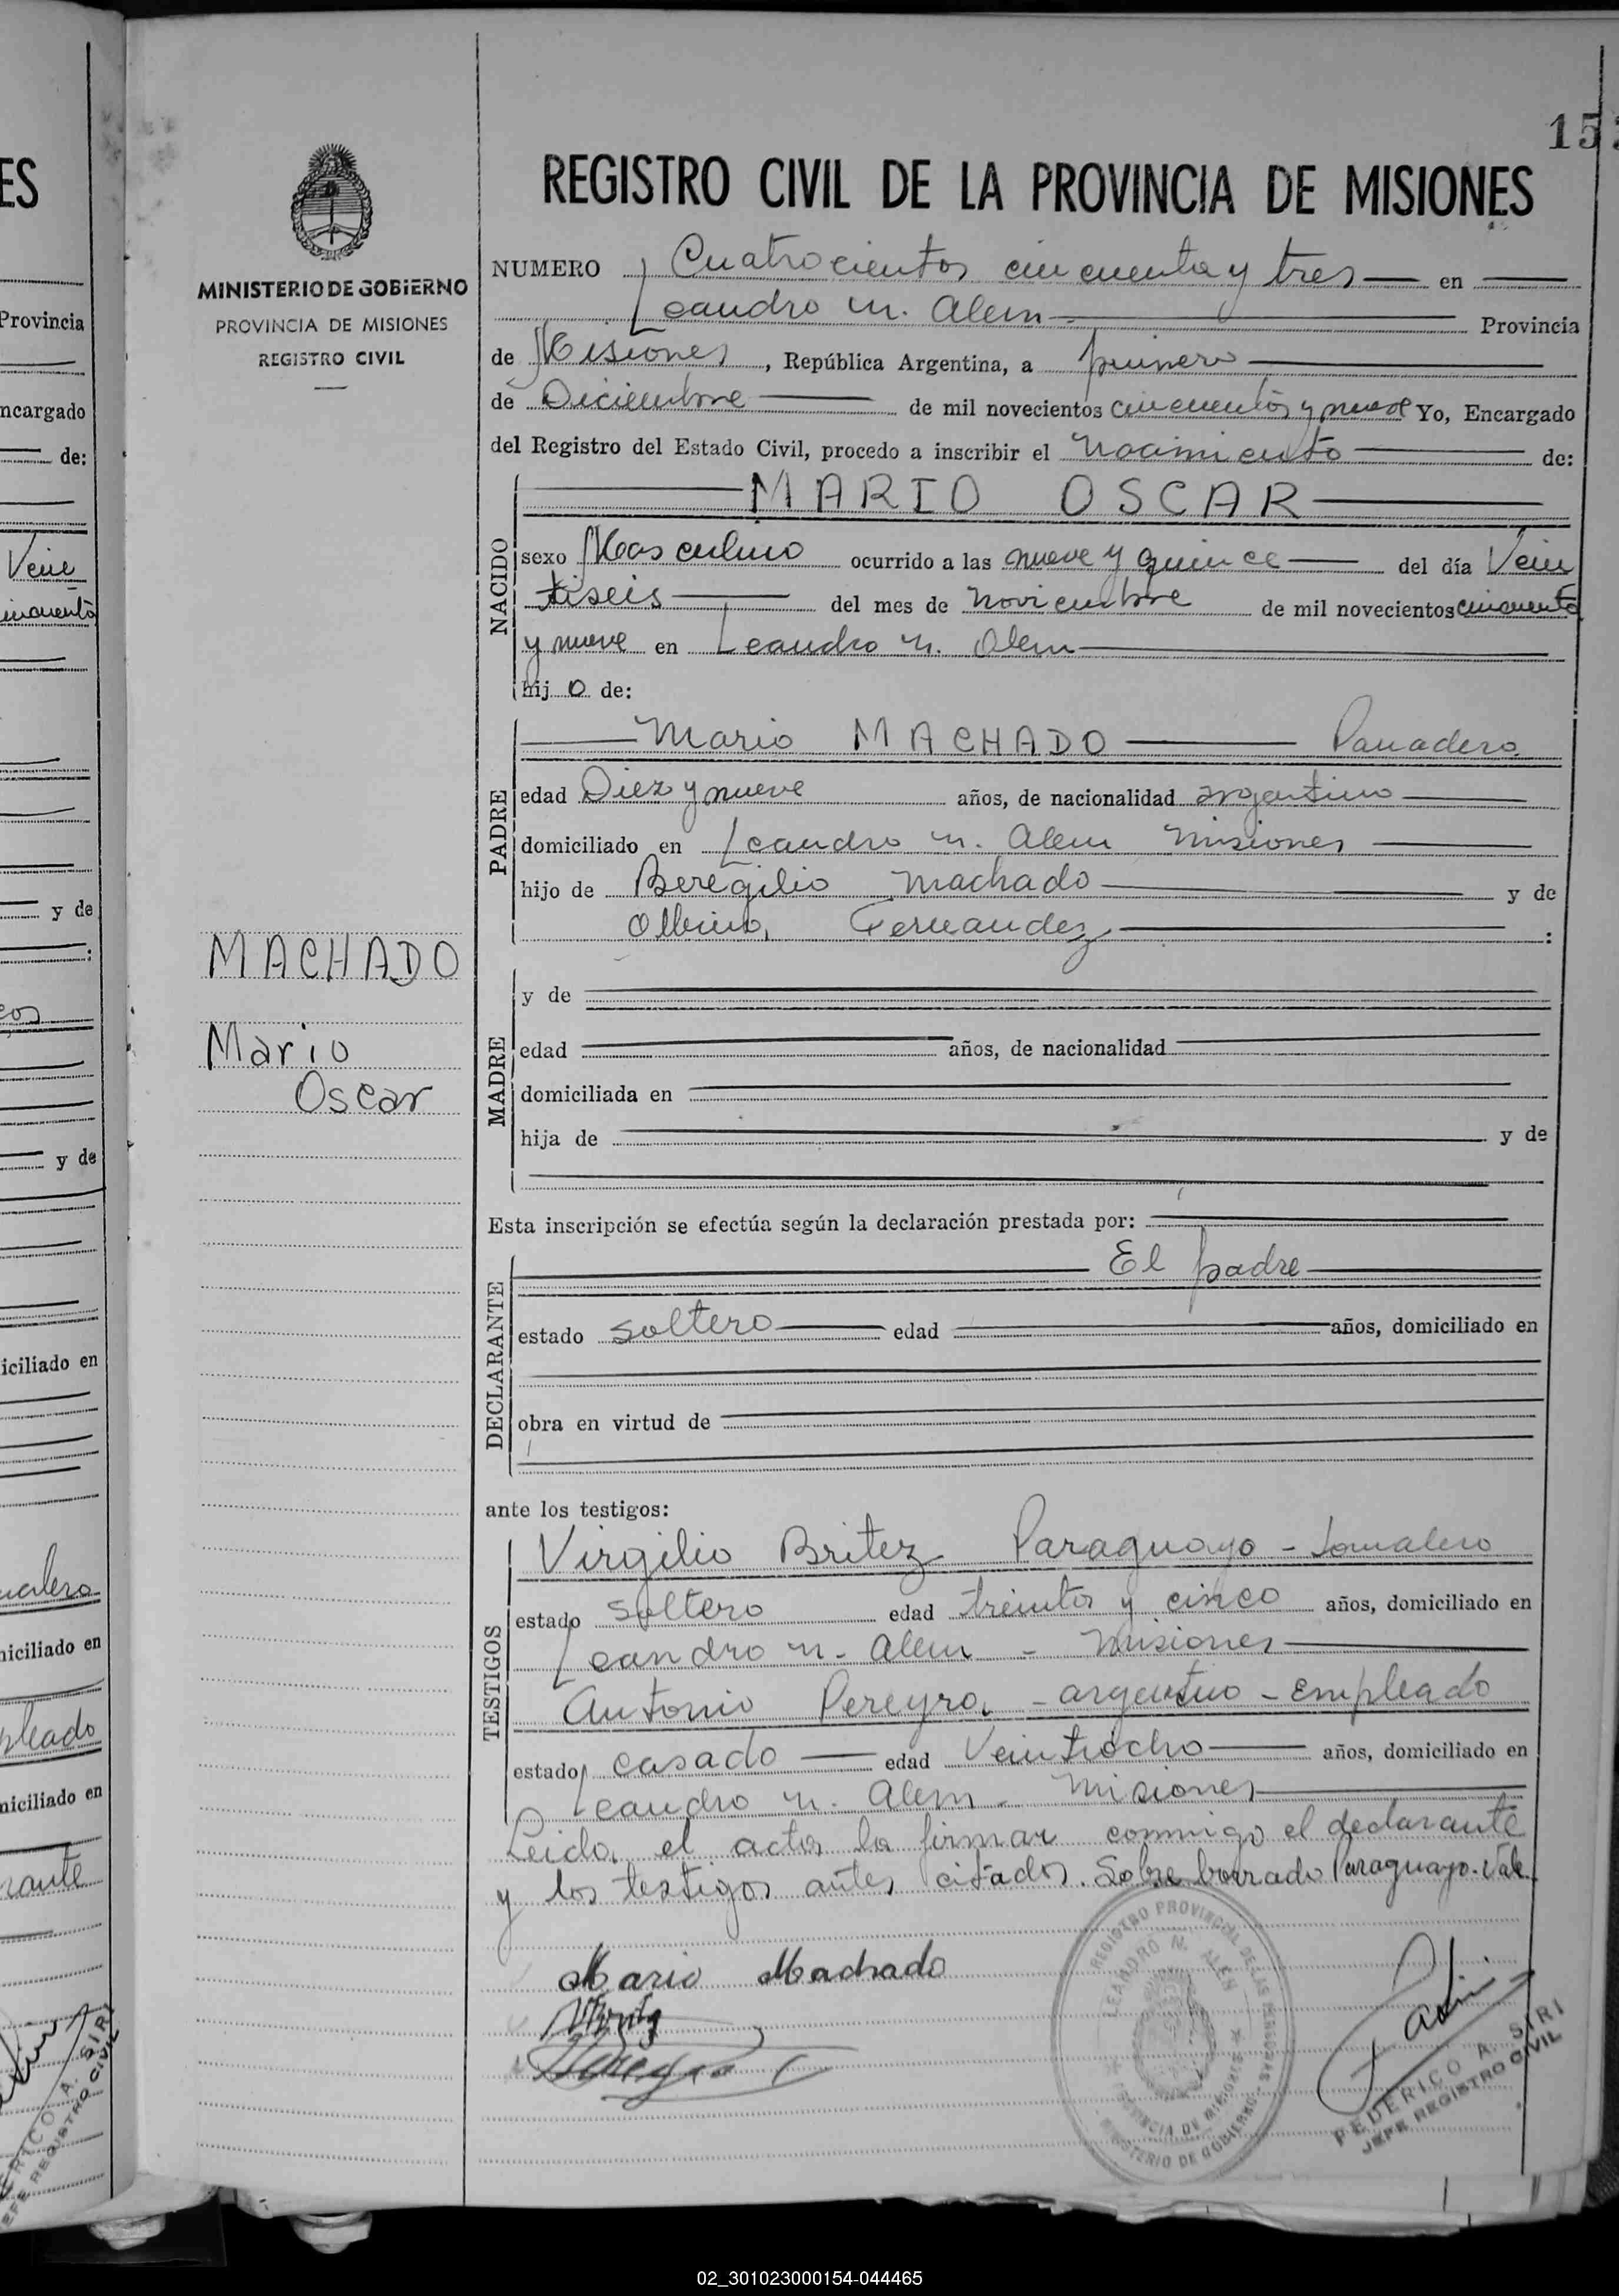 153
REGISTRO CIVIL DE LA PROVINCIA DE MISIONES
MINISTERIO DE GOBIERNO
PROVINCIA DE MISIONES
REGISTRO CIVIL
NUMERO Cuatrocientos cincuenta y tres en
Leandro N. Alem Provincia
de Misiones, República Argentina, a primero
de Diciembre de mil novecientos cincuenta y nueve Yo, Encargado
del Registro del Estado Civil, procedo a inscribir el Nacimiento de:
NACIDO
MARIO OSCAR
sexo Masculino ocurrido a las nueve y quince del día Vein
tiseis del mes de Noviembre de mil novecientos cincuenta
y nueve en Leandro N. Alem
hijo de:
PADRE
Mario MACHADO Panadero
edad Diez y nueve años, de nacionalidad argentino
domiciliado en Leandro N. Alem Misiones
hijo de Beregilio Machado y de
Albina Fernandez :
MACHADO
Mario
Oscar
MADRE
y de
edad años, de nacionalidad
domiciliada en
hija de y de
Esta inscripción se efectúa según la declaración prestada por:
DECLARANTE
El padre
estado soltero edad años, domiciliado en
obra en virtud de
ante los testigos:
TESTIGOS
Virgilio Britez Paraguayo - Jornalero
estado soltero edad treinta y cinco años, domiciliado en
Leandro N. Alem - Misiones
Antonio Pereyra - argentino - empleado
estado casado edad Veintiocho años, domiciliado en
Leandro N. Alem - Misiones
Leida el acta la firman conmigo el declarante
y los testigos antes citados. Sobre borrado Paraguayo. Vale.
Mario Machado
Pereyra
REGISTRO PROVINCIAL DE LAS PERSONAS
LEANDRO N. ALEM
PROVINCIA DE MISIONES
MINISTERIO DE GOBIERNO
FEDERICO A. SIRI
JEFE REGISTRO CIVIL
02_301023000154-044465